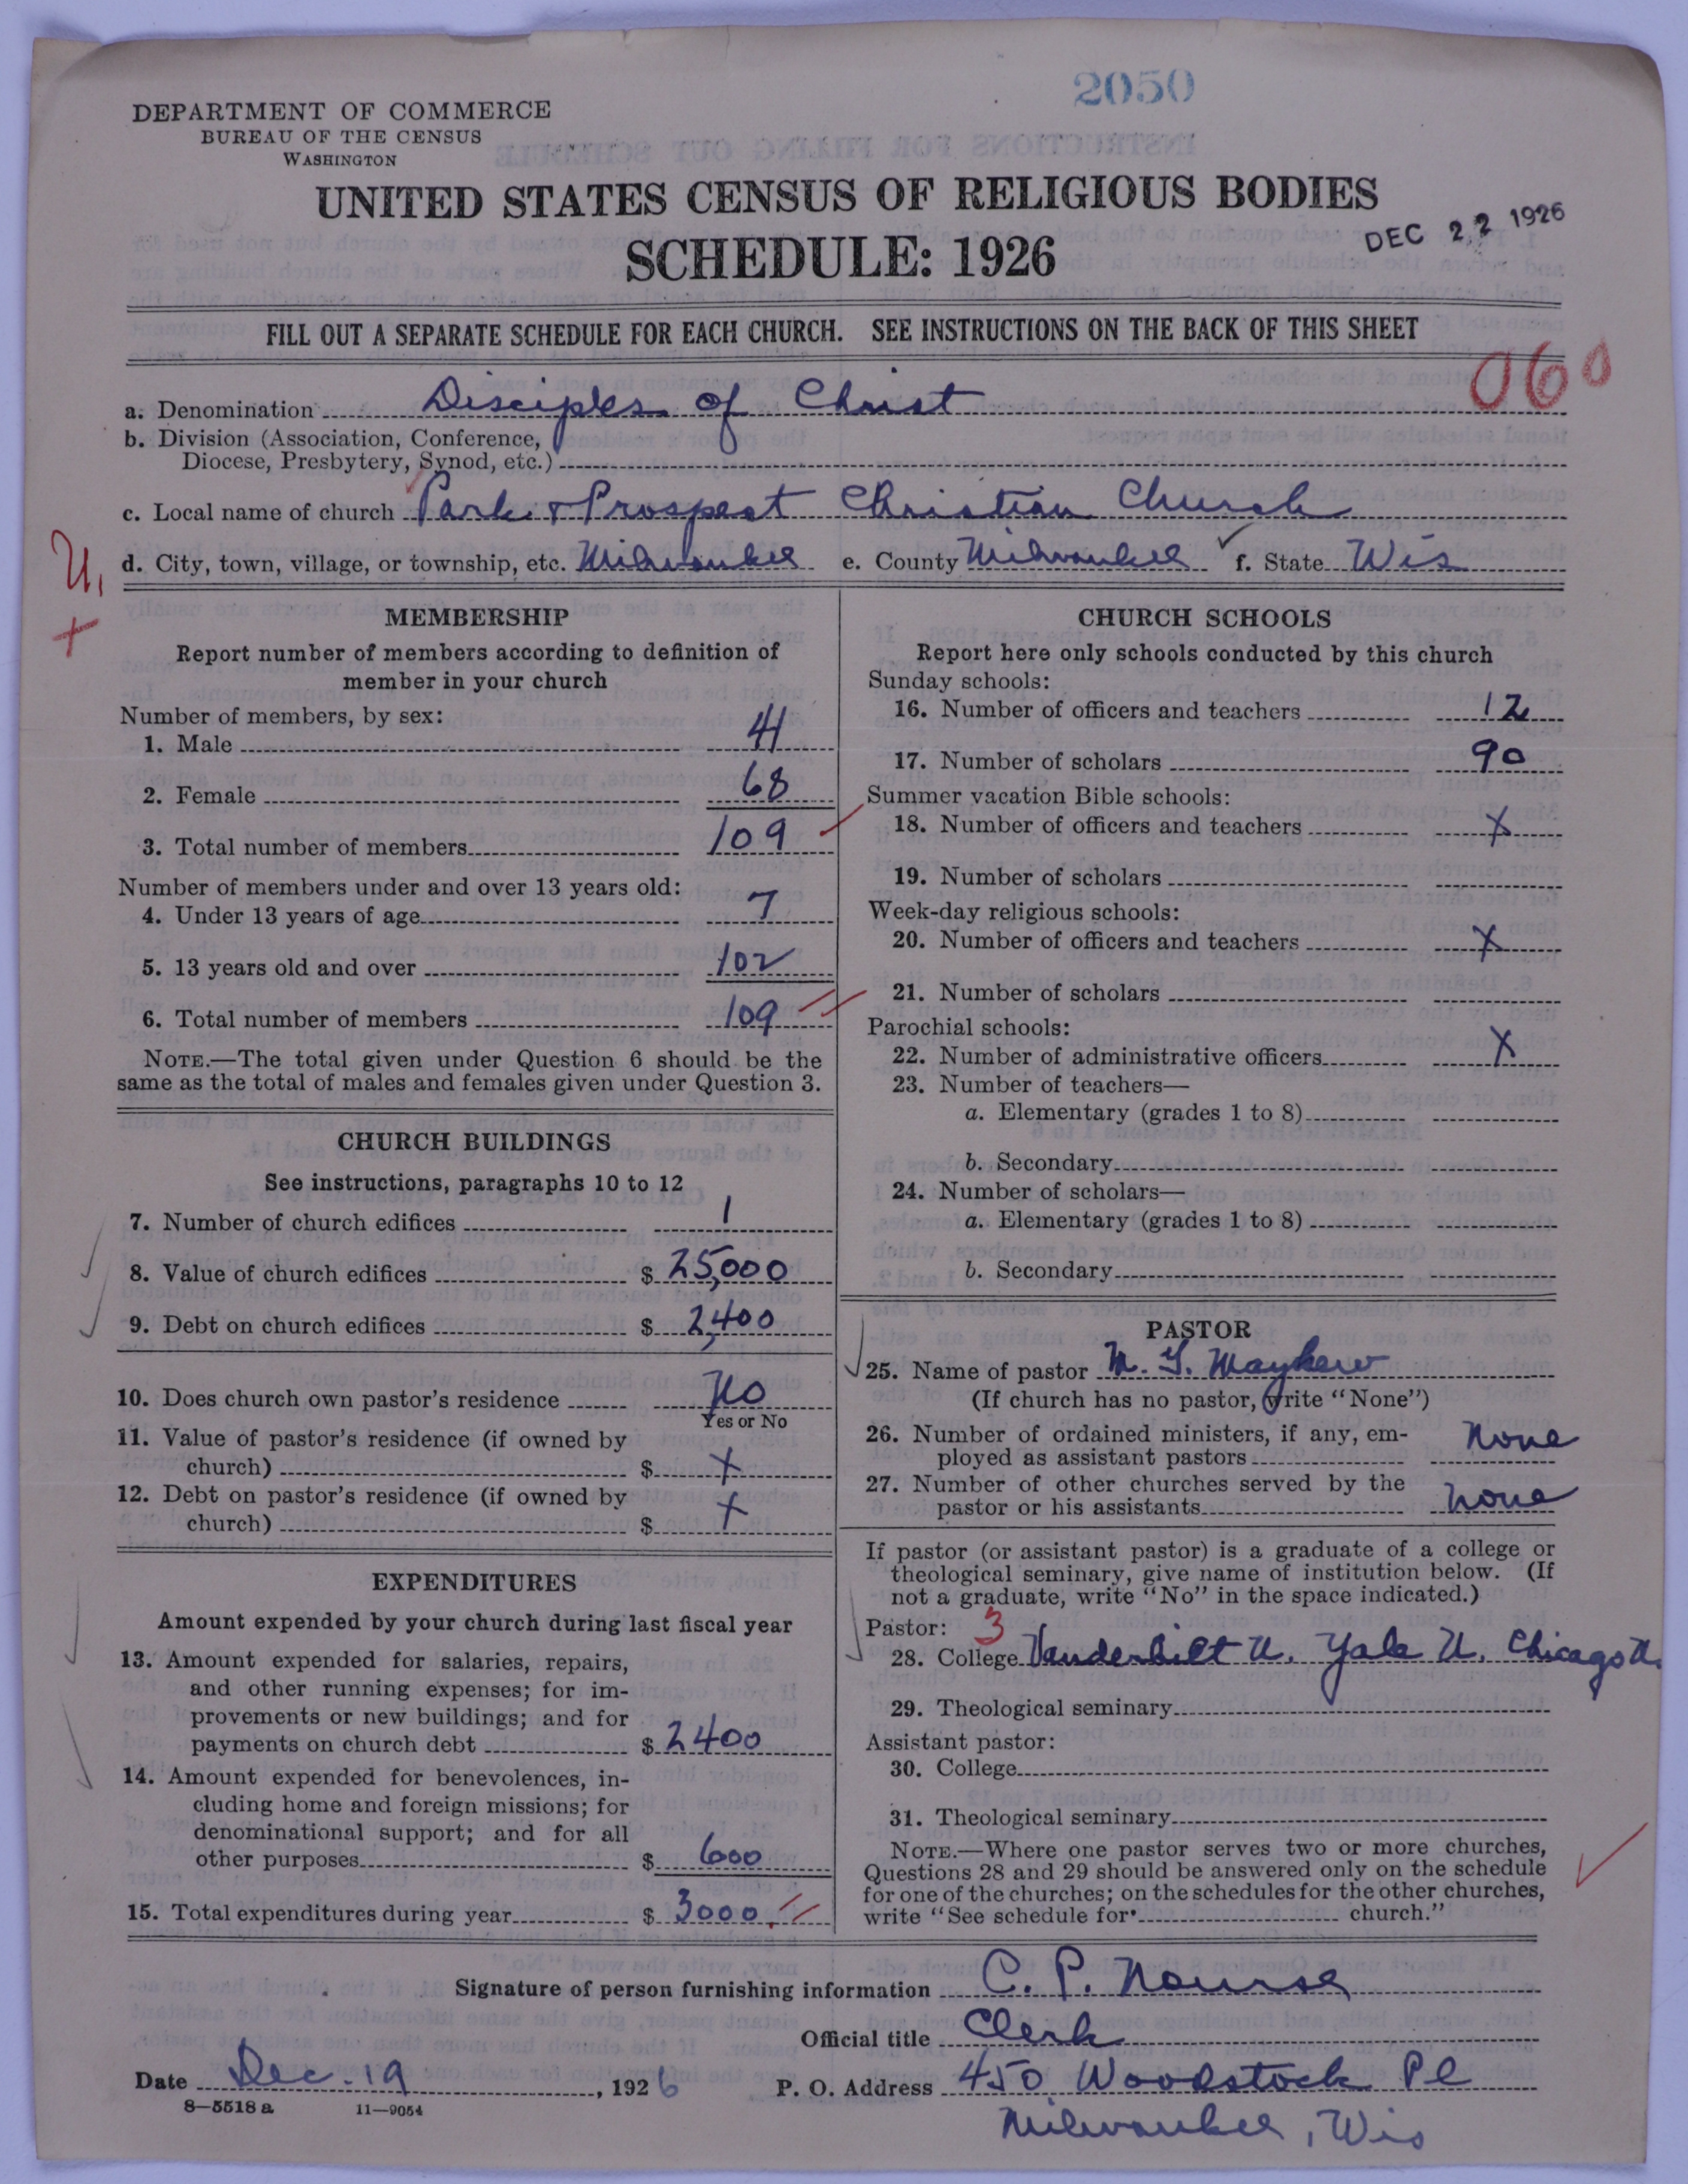 2050
DEPARTMENT OF COMMERCE
BUREAU OF THE CENSUS
WASHINGTON
UNITED STATES CENSUS OF RELIGIOUS BODIES
SCHEDULE: 1926
DEC 22 1926
FILL OUT A SEPARATE SCHEDULE FOR EACH CHURCH. SEE INSTRUCTIONS ON THE BACK OF THIS SHEET
060
a. Denomination Disciples of Christ
b. Division (Association, Conference,
Diocese, Presbytery, Synod, etc.)
c. Local name of church Park & Prospect Christian Church
U. d. City, town, village, or township, etc. Milwaukee e. County Milwaukee f. State Wis
MEMBERSHIP
Report number of members according to definition of
member in your church
Number of members, by sex:
1. Male 41
2. Female 68
3. Total number of members 109
Number of members under and over 13 years old:
4. Under 13 years of age 7
5. 13 years old and over 102
6. Total number of members 109
NOTE.—The total given under Question 6 should be the
same as the total of males and females given under Question 3.
CHURCH BUILDINGS
See instructions, paragraphs 10 to 12
7. Number of church edifices 1
8. Value of church edifices $ 25,000
9. Debt on church edifices $ 2,400
10. Does church own pastor's residence No
Yes or No
11. Value of pastor's residence (if owned by
church) $ x
12. Debt on pastor's residence (if owned by
church) $ x
EXPENDITURES
Amount expended by your church during last fiscal year
13. Amount expended for salaries, repairs,
and other running expenses; for im-
provements or new buildings; and for
payments on church debt $ 2400
14. Amount expended for benevolences, in-
cluding home and foreign missions; for
denominational support; and for all
other purposes $ 600
15. Total expenditures during year $ 3000.
CHURCH SCHOOLS
Report here only schools conducted by this church
Sunday schools:
16. Number of officers and teachers 12
17. Number of scholars 90
Summer vacation Bible schools:
18. Number of officers and teachers x
19. Number of scholars
Week-day religious schools:
20. Number of officers and teachers x
21. Number of scholars
Parochial schools:
22. Number of administrative officers x
23. Number of teachers—
a. Elementary (grades 1 to 8)
b. Secondary
24. Number of scholars—
a. Elementary (grades 1 to 8)
b. Secondary
PASTOR
25. Name of pastor M. G. Mayhew
(If church has no pastor, write "None")
26. Number of ordained ministers, if any, em-
ployed as assistant pastors None
27. Number of other churches served by the
pastor or his assistants None
If pastor (or assistant pastor) is a graduate of a college or
theological seminary, give name of institution below. (If
not a graduate, write "No" in the space indicated.)
Pastor: 3
28. College Vanderbilt U. Yale U. Chicago U.
29. Theological seminary
Assistant pastor:
30. College
31. Theological seminary
NOTE.—Where one pastor serves two or more churches,
Questions 28 and 29 should be answered only on the schedule
for one of the churches; on the schedules for the other churches,
write "See schedule for church."
Signature of person furnishing information C. P. Nourse
Official title Clerk
Date Dec. 19, 1926 P. O. Address 450 Woodstock Pl
8—5518 a 11—9054
Milwaukee, Wis